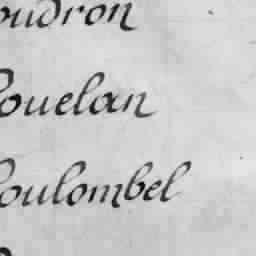 oudron
Pouelan
Coulombel